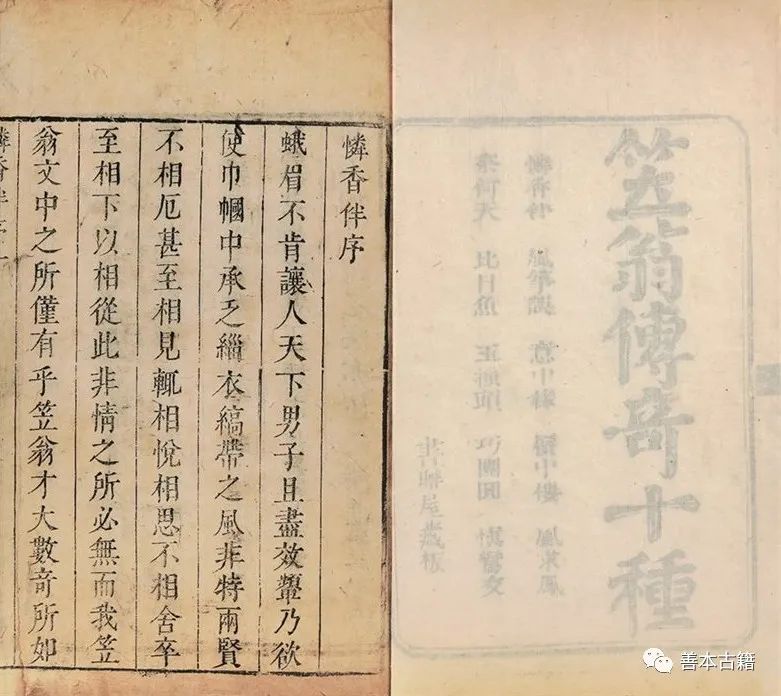 笠翁傳奇十種
憐香伴 風箏誤 意中緣 蜃中樓 凰求鳳
奈何天 比目魚 玉搔頭 巧團圓 慎鸞交
書聯屋藏板
憐香伴序
蛾眉不肯讓人天下男子且盡效顰乃欲
使巾幗中承乏緇衣縞帶之風非特兩賢
不相厄甚至相見輒相悅相思不相舍卒
至相下以相從此非情之所必無而我笠
翁文中之所僅有乎笠翁才大數奇所如
憐香伴序 一
善本古籍